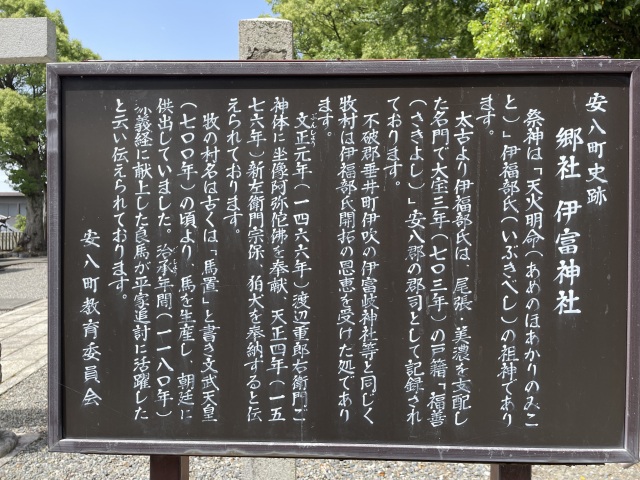 安八町史跡
郷社 伊富神社
祭神は「天火明命(あめのほあかりのみこ
と)」伊福部氏(いぶきべし)の祖神であり
ます。
太古より伊福部氏は、尾張、美濃を支配し
た名門で大宝三年(七〇三年)の戸籍「福善
(さきよし)」安八郡の郡司として記録され
ております。
不破郡垂井町伊吹の伊富岐神社等と同じく
牧村は伊福部氏開拓の恩恵を受けた処であり
ます。
文正元年(一四六六年)渡辺重郎右衛門ご
ぶんしょう
神体に坐像阿弥陀佛を奉献、天正四年(一五
七六年)新左衛門宗保、狛犬を奉納すると伝
えられております。
牧の村名は古くは「馬置」と書き文武天皇
(七〇〇年)の頃より、馬を生産し、朝廷に
供出していました。治承年間(一一八〇年)
義経に献上した良馬が平家追討に活躍した
と云い伝えられております。
安八町教育委員会